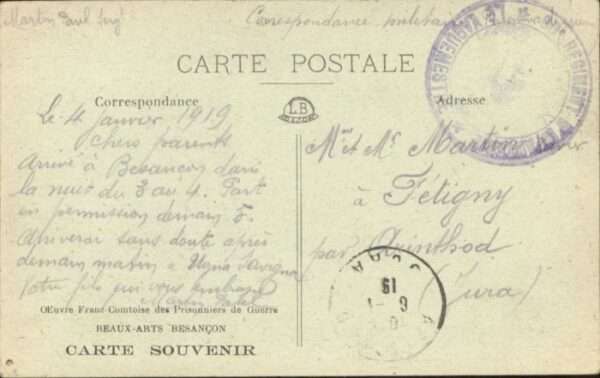 Martin Paul
Correspondance militaire
CARTE POSTALE
Correspondance
LB
Adresse
Le 4 Janvier 1919
chers parents
Arrivé à Besançon dans
la nuit du 3 au 4. Part
en permission demain 5.
Arriverai sans doute après
demain matin à Ugna Savigna
Votre fils qui vous embrasse
Martin Paul
Mme et Mr Martin
à Fétigny
par Arinthod
(Jura)
Œuvre Franc-Comtoise des Prisonniers de Guerre
BEAUX-ARTS BESANÇON
CARTE SOUVENIR